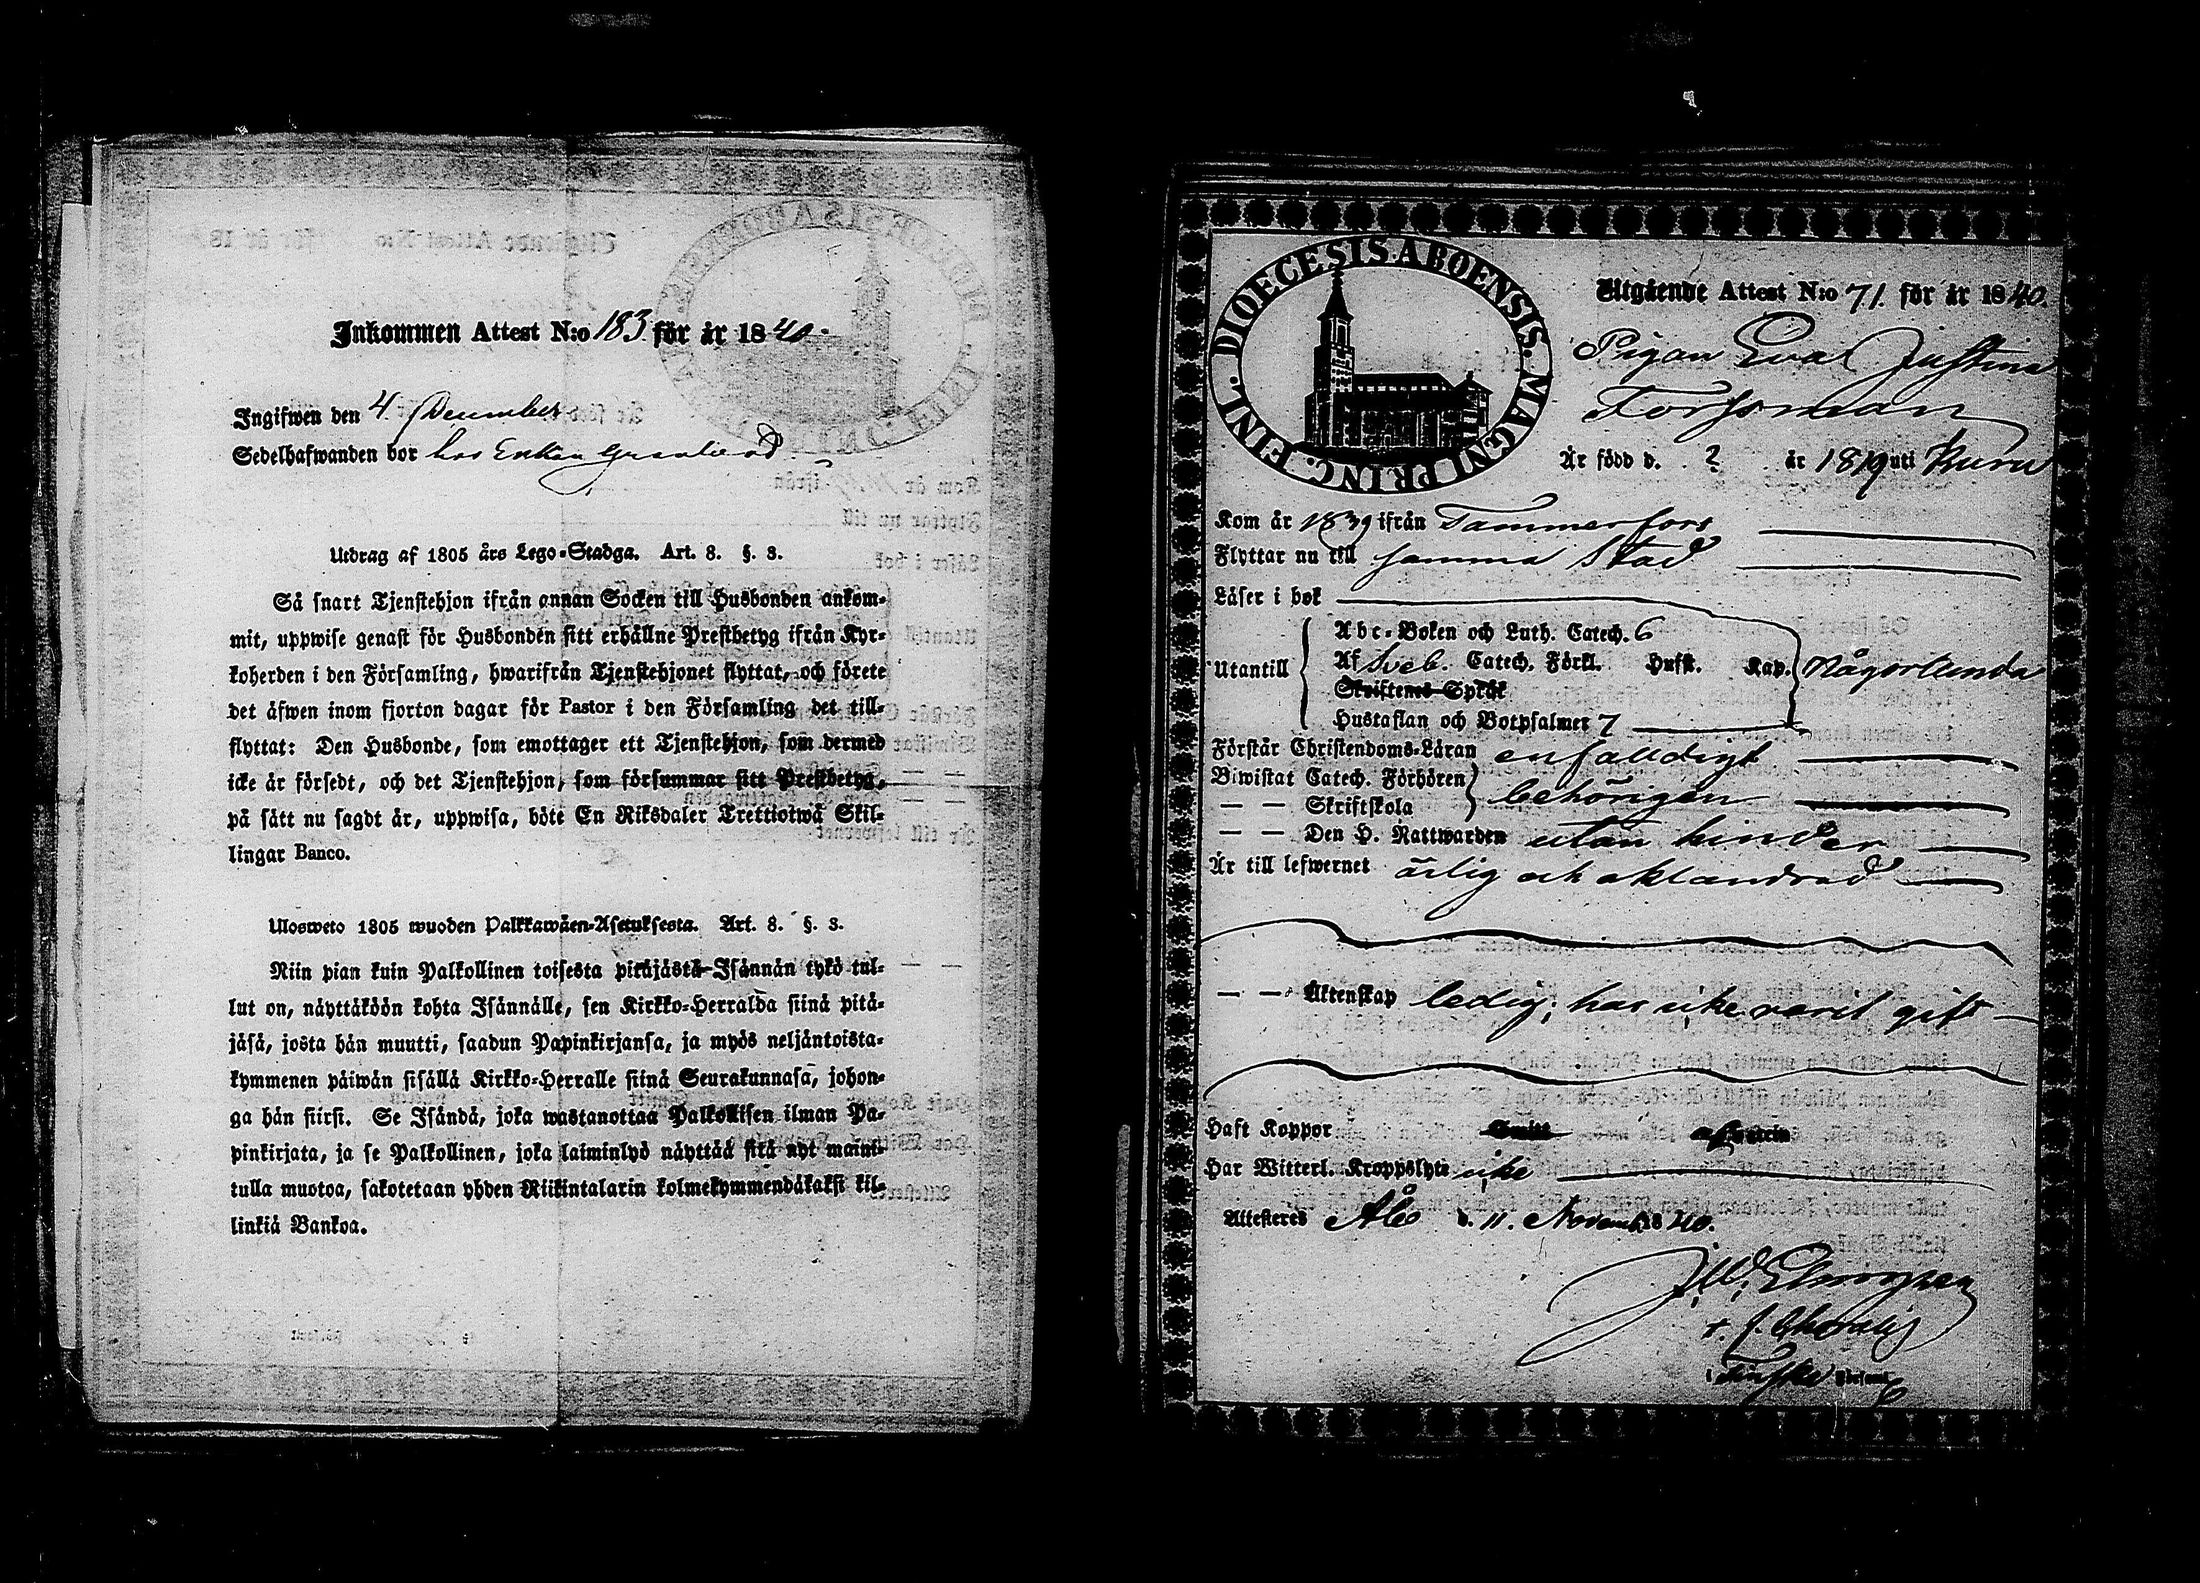 Inkommen Attest N:o 183 för år 1840.
Ingifwen den 4 December
Sedelhafwanden bor hos Enkan
Utdrag af 1805 års Lego-Stadga. Art. 8. §. 3.
Så snart Tjenstehjon ifrån annan Socken till Husbonden ankom-
mit, uppwise genast för Husbonden sitt erhållne Prestbetyg ifrån Kyr-
koherden i den Församling, hwarifrån Tjenstehjonet flyttat, och förete
det äfwen inom fjorton dagar för Pastor i den Församling det till-
flyttat: Den Husbonde, som emottager ett Tjenstehjon, som dermed
icke är försedt, och det Tjenstehjon, som försummar sitt Prestbetyg,
på sätt nu sagdt är, uppwisa, böte En Riksdaler Trettiotwå Skil-
lingar Banco.
Ulosweto 1805 wuoden Palkkawäen-Asetuksesta. Art. 8. §. 3.
Niin pian kuin Palkollinen toisesta pitäjästä Isännän tykö tul-
lut on, näyttäköön kohta Isännälle, sen Kirkko-Herralda siinä pitä-
jäsä, josta hän muutti, saadun Papinkirjansa, ja myös neljäntoista-
kymmenen päiwän sisällä Kirkko-Herralle siinä Seurakunnasa, johon-
ga hän siirsi. Se Isändä, joka wastanottaa Palkollisen ilman Pa-
pinkirjata, ja se Palkollinen, joka laiminlyö näyttää sitä nyt maini-
tulla muotoa, sakotetaan yhden Riikintalarin kolmekymmendäkaksi kil-
linkiä Bankoa.
DIOECESIS ABOENSIS. MAGNI PRINC. FINL.
Utgående Attest N:o 71. för år 1840.
Pigan Eva Justina
Forssman
Är född d. ? år 1819 uti Kuru
Kom år 1839 ifrån Tammerfors
Flyttar nu till samma Stad
Läser i bok
Abc-Boken och Luth. Catech. 6
Utantill Af Sveb. Catech. Förkl. Hufst. Kap. någorlunda
Skriftenes Språk
Hustaflan och Botpsalmer 7
Förstår Christendoms-Läran enfaldigt
Biwistat Catech. Förhören behörigen
— — Skriftskola
— — Den H. Nattwarden utan hinder
Är till lefwernet ärlig och oklandrad
— — Äktenskap ledig; har icke varit gift
Haft Koppor
Har Witterl. Kroppslyte icke
Attesteres Åbo d. 11. November 1840.
i Finska Församl.